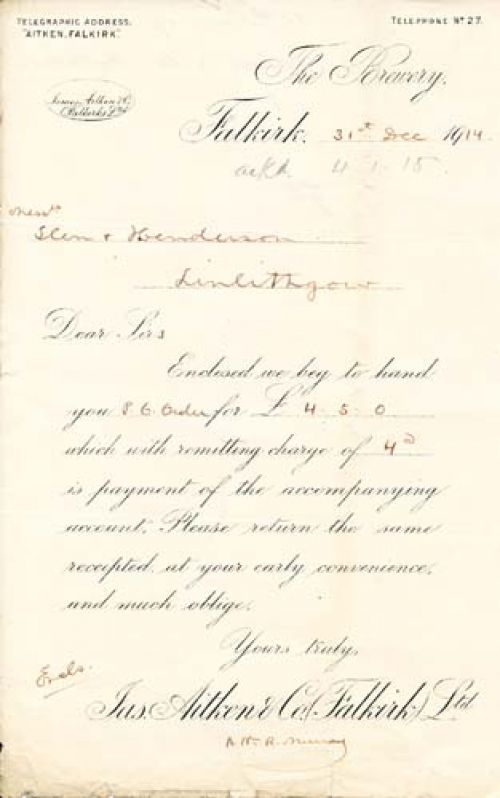 TELEGRAPHIC ADDRESS,
"AITKEN, FALKIRK"
TELEPHONE Nº 27.
James Aitken & Co
(Falkirk) Ltd
The Brewery,
Falkirk, 31st Dec 1914
ackd 4.1.15.
Messrs
Glen & Henderson
Linlithgow
Dear Sirs
Enclosed we beg to hand
you P.O. Order for £ 4. 5. 0
which with remitting charge of 4D
is payment of the accompanying
account. Please return the same
receipted, at your early convenience,
and much oblige,
Yours truly,
Encls.
Jas. Aitken & Co. (Falkirk) Ltd
Murray